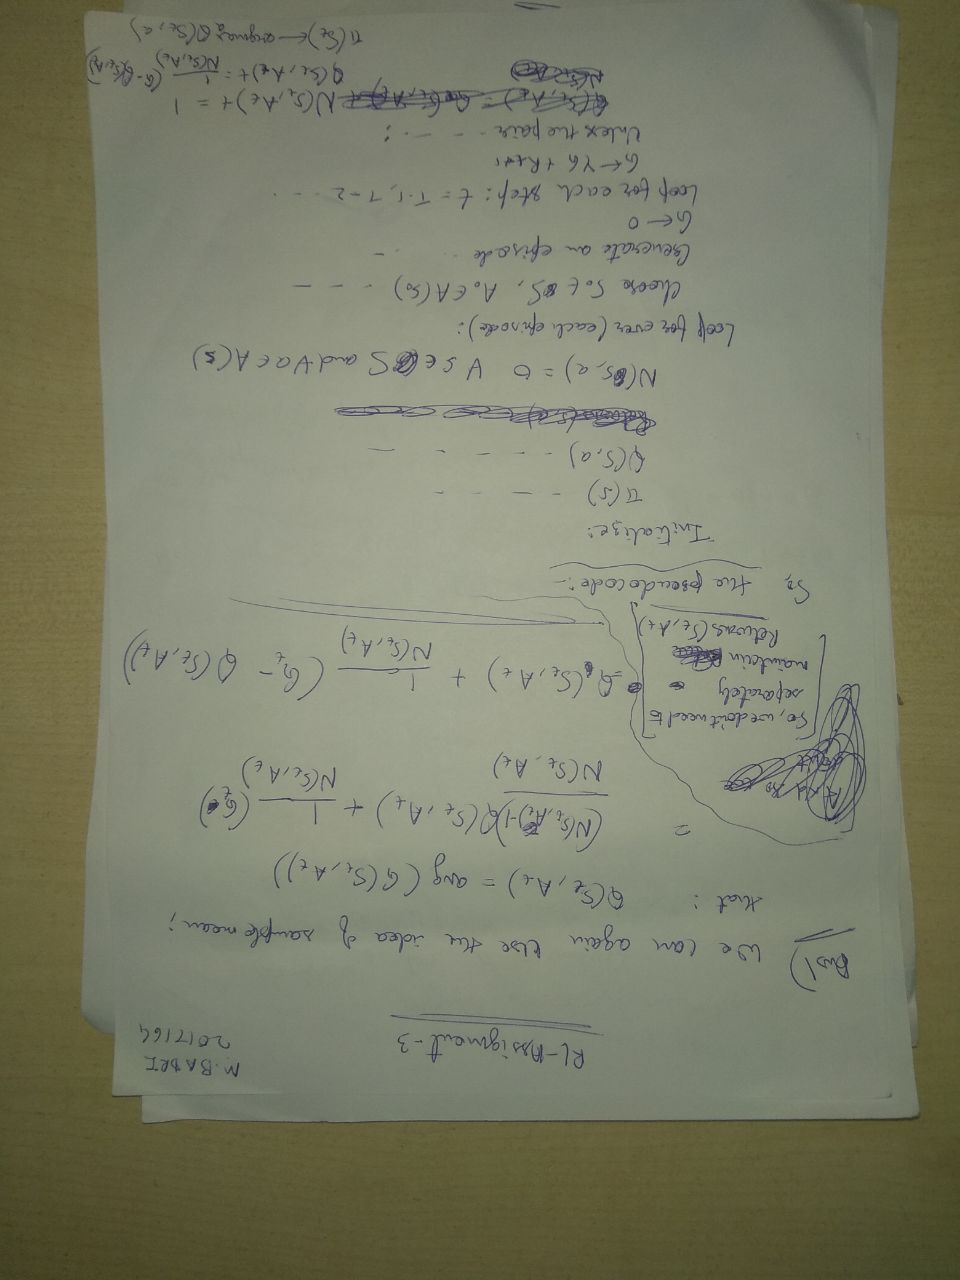 M. BADRI
2017164
RL-Assignment-3
Ans1) We can again use the idea of sample mean;
that : Q(St, At) = avg (G(St, At))
= (N(St, At)-1)Q(St, At) / N(St, At) + 1/N(St, At) (Gt)
= Q(St, At) + 1/N(St, At) (Gt - Q(St, At))
So, we don't need to
separately
maintain
Returns(St, At)
So, the pseudocode:-
Initialize:
π(s) - - - -
Q(s, a) - - - - -
N(s, a) = 0 ∀ s ∈ S and ∀ a ∈ A(s)
Loop for ever (each episode):
Choose S0 ∈ S, A0 ∈ A(S0) - - -
Generate an episode - - -
G ← 0
Loop for each step: t = T-1, T-2 - - -
G ← γG + Rt+1
Unless the pair - - - :
N(St, At) += 1
Q(St, At) += 1/N(St, At) (G - Q(St, At))
π(St) ← argmaxa Q(St, a)